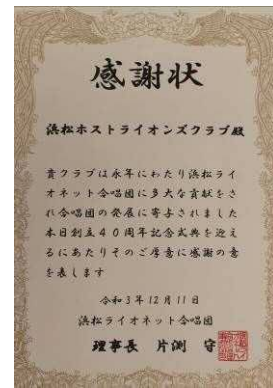 感謝状
浜松ホストライオンズクラブ殿
貴クラブは永年にわたり浜松ライ
オネット合唱団に多大な貢献をさ
れ合唱団の発展に寄与されました
本日創立40周年記念式典を迎え
るにあたりそのご厚意に感謝の意
を表します
令和3年12月11日
浜松ライオネット合唱団
理事長 片渕 守